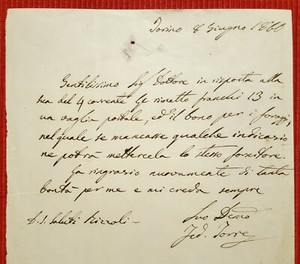 Torino 8 Giugno 1860
Gentilissimo Sig Dottore in risposta alla
sua del 4 corrente Le rimetto franchi 13 in
un vaglia postale, ed il bono per i
nel quale se mancasse qualche indirizzo
ne potrà mettercela lo stesso fornitore.
La ringrazio nuovamente di tanta
bontà per me e mi creda sempre
Suo
D. S. Saluti
Fed. Torre